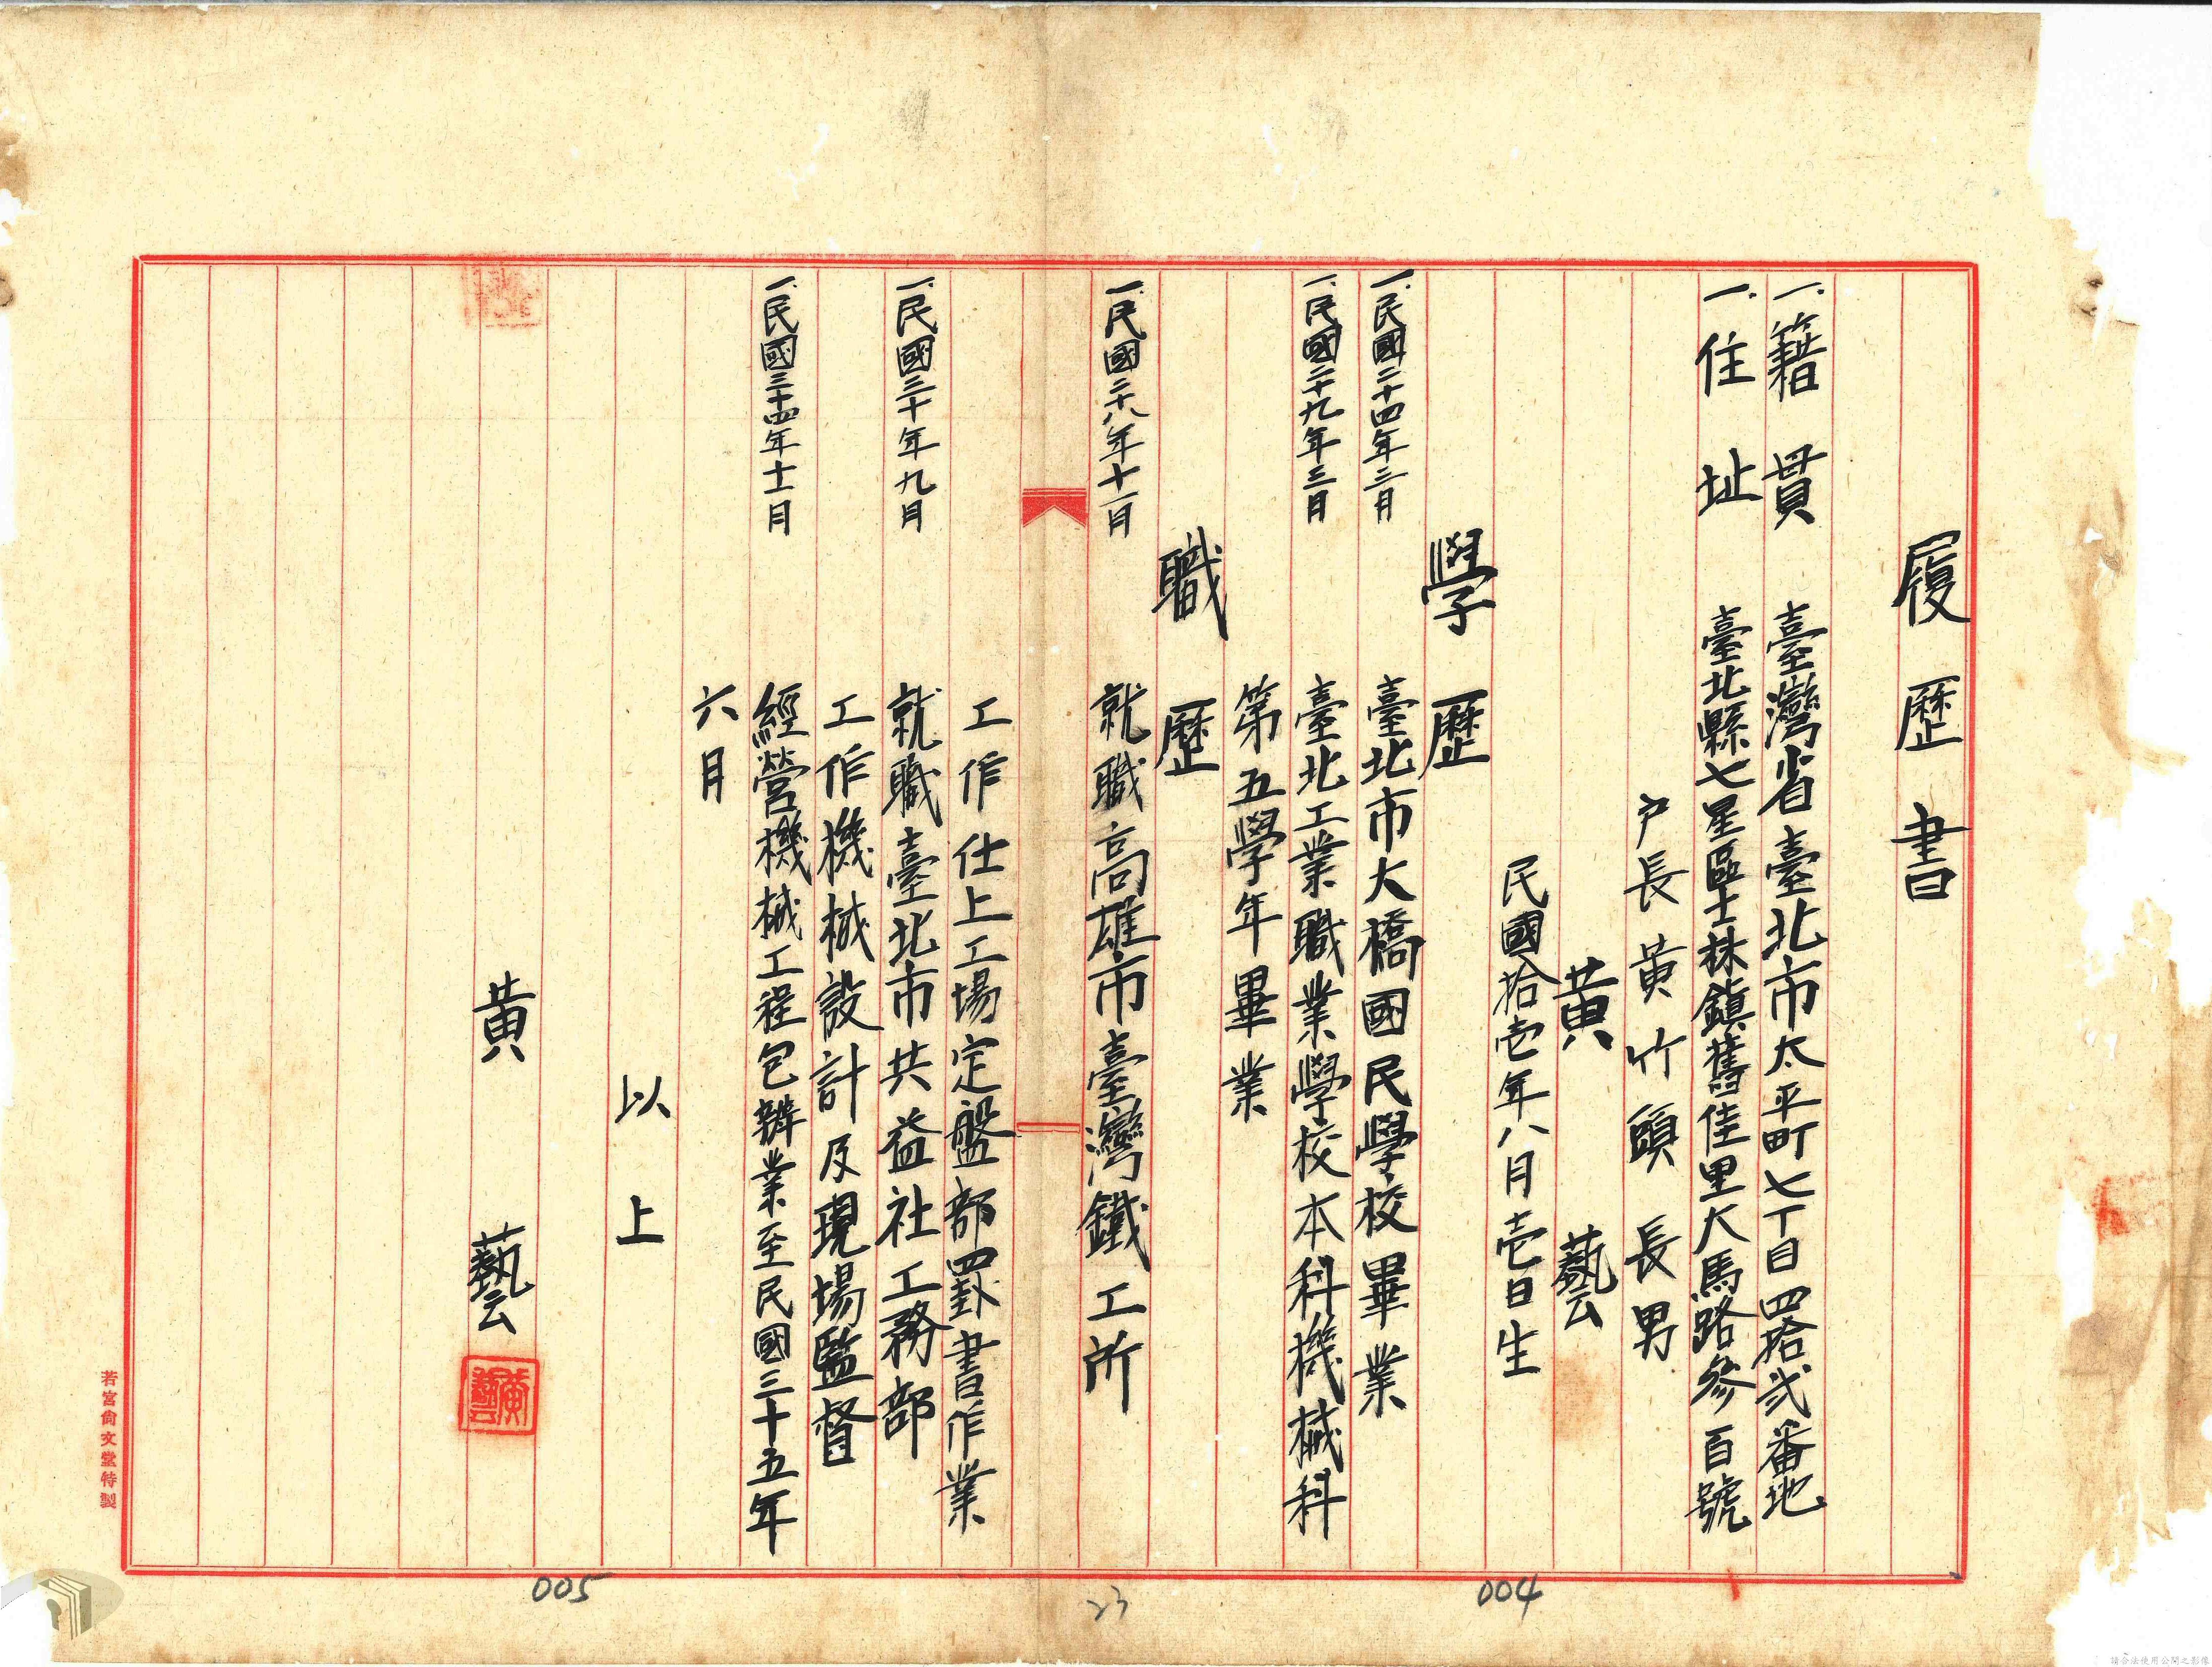 履歷書
一.籍貫 臺灣省臺北市太平町七丁目四拾弍番地
一.住址 臺北縣七星區士林鎮舊佳里大馬路參百號
戶長 黃竹頭 長男
黃藝
民國拾壱年八月壱日生
學歷
一.民國二十四年三月 臺北市大橋國民學校畢業
一.民國二十九年三月 臺北工業職業學校本科機械科
第五學年畢業
職歷
一.民國二十八年十二月 就職高雄市臺灣鐵工所
工作仕上工場定盤部罫書作業
一.民國三十年九月 就職臺北市共益社工務部
工作機械設計及現場監督
一.民國三十四年十一月 經營機械工程包辦業至民國三十五年
六月
以上
黃藝
黃藝
若宮尙文堂特製
004
23
005
請合法使用公開之影像